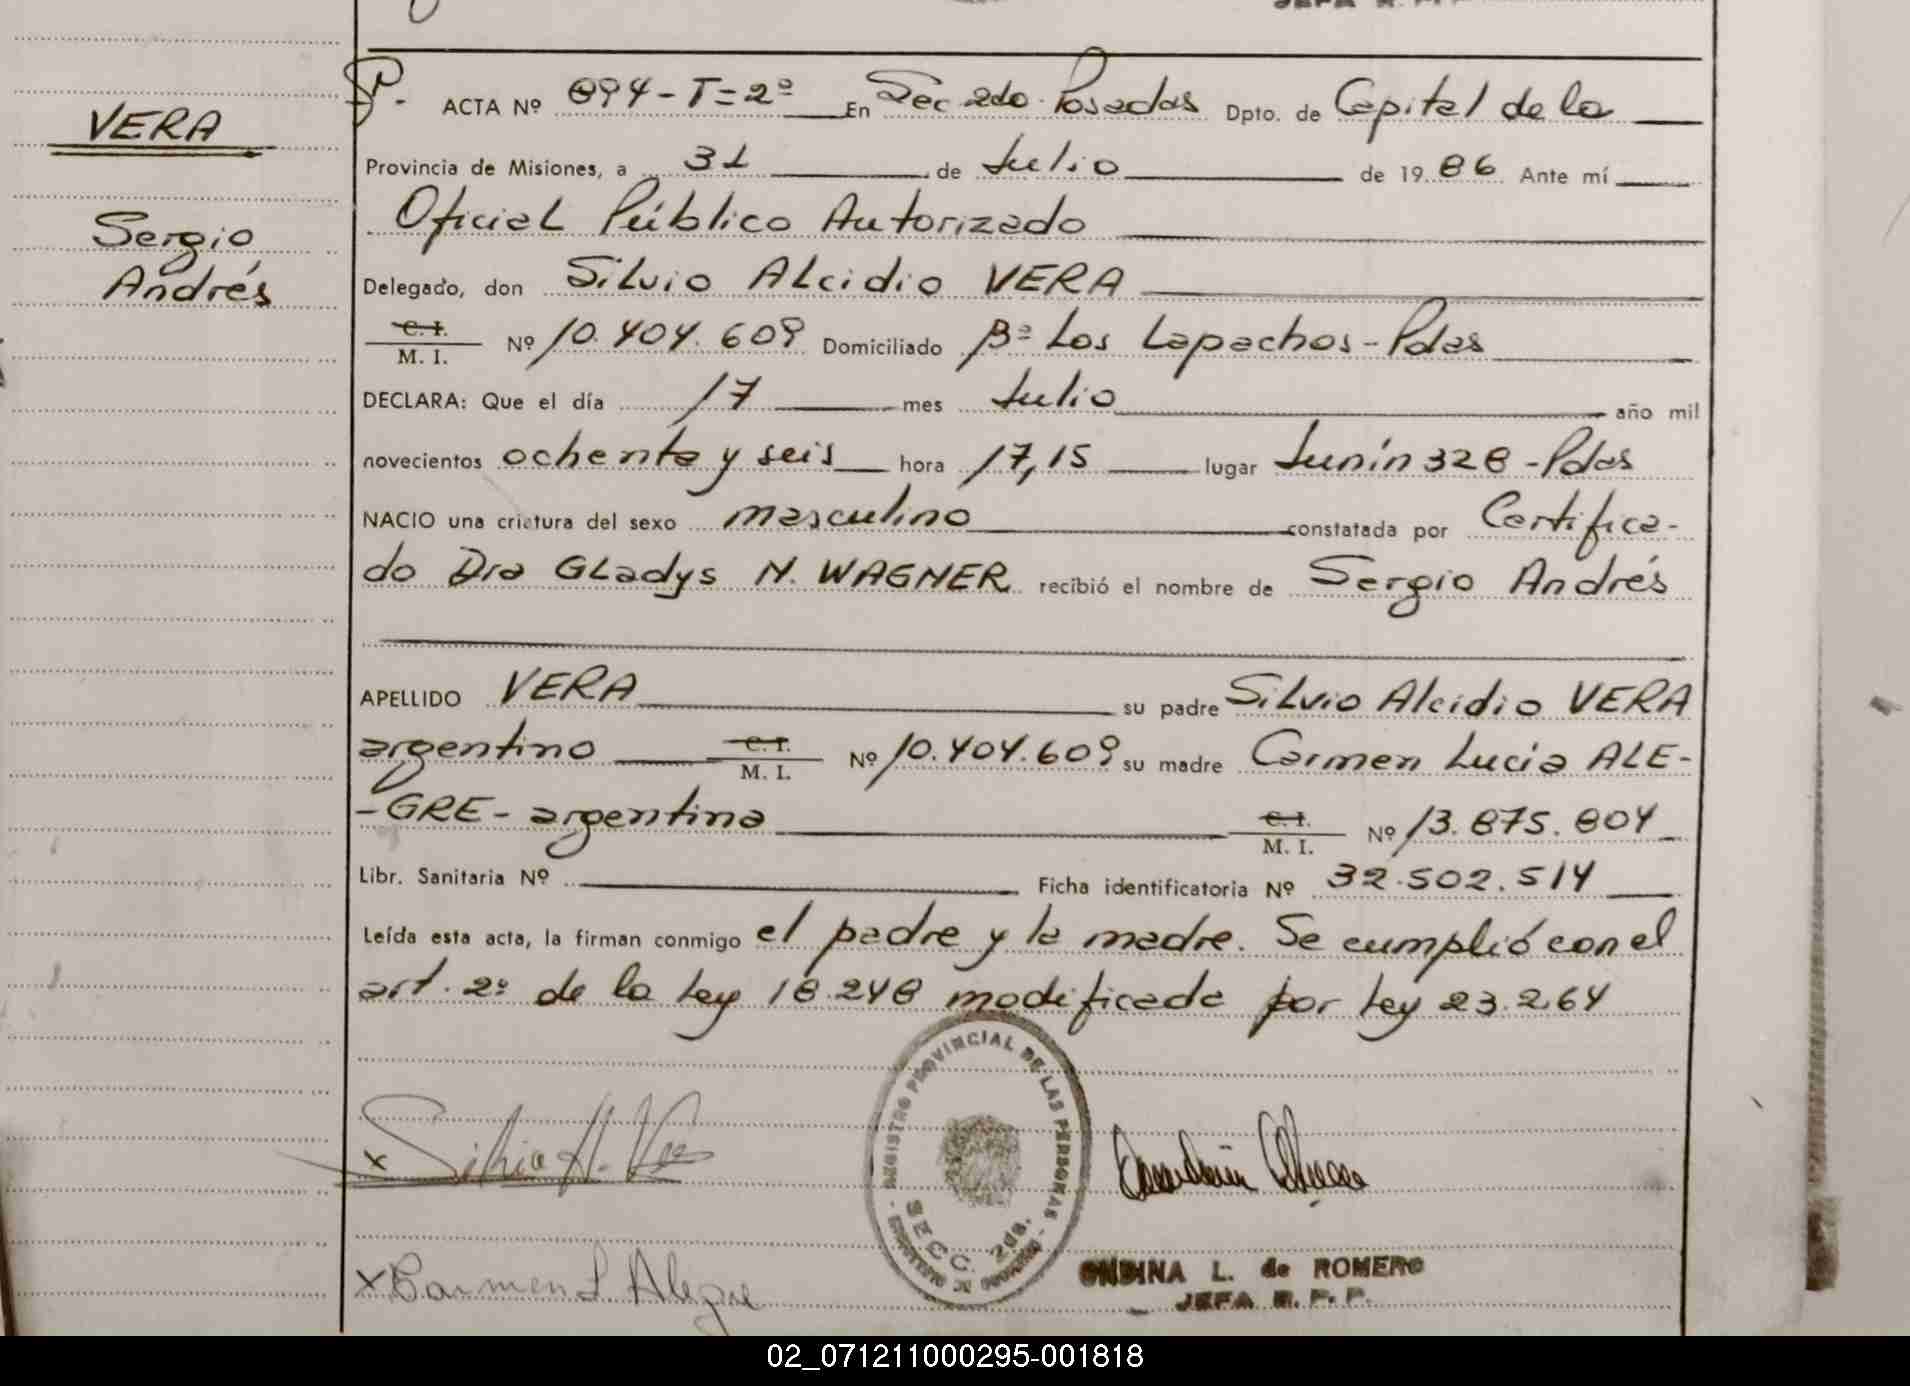 VERA
Sergio
Andrés
ACTA Nº 894-T=2º En Sec 2do. Posadas Dpto. de Capital de la
Provincia de Misiones, a 31 de Julio de 1986 Ante mí
Oficial Público Autorizado
Delegado, don Silvio Alcidio VERA
C. I.
M. I. Nº 10.404.609 Domiciliado Bº Los Lapachos-Pdas
DECLARA: Que el día 17 mes Julio año mil
novecientos ochenta y seis hora 17,15 lugar Junín 328-Pdas
NACIO una criatura del sexo masculino constatada por Certifica-
do Dra GLadys N. WAGNER recibió el nombre de Sergio Andrés
APELLIDO VERA su padre Silvio Alcidio VERA
argentino C. I.
M. I. Nº 10.404.609 su madre Carmen Lucía ALE-
-GRE- argentina C. I.
M. I. Nº 13.875.804
Libr. Sanitaria Nº Ficha identificatoria Nº 32.502.514
Leída esta acta, la firman conmigo el padre y la madre. Se cumplió con el
art. 2º de la Ley 18.248 modificada por Ley 23.264
REGISTRO PROVINCIAL DE LAS PERSONAS
SECC. 2da.
x Silvio A. Vera
x Carmen L Alegre
ONDINA L. de ROMERO
JEFA R. P. P.
02_071211000295-001818